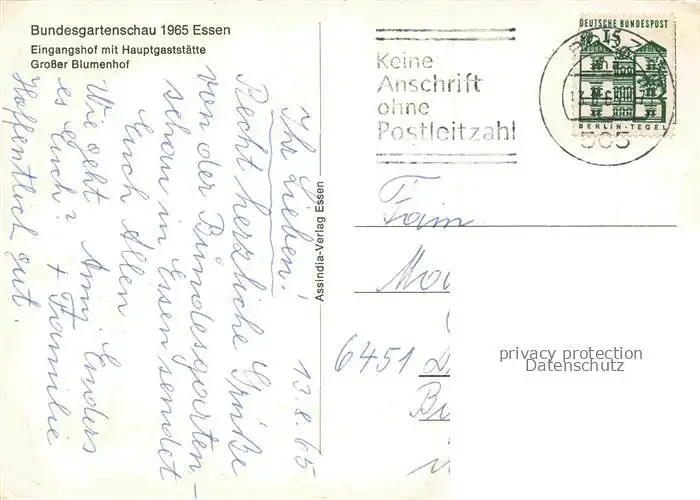 Bundesgartenschau 1965 Essen
Eingangshof mit Hauptgaststätte
Großer Blumenhof
Ihr Lieben! 13.8.65
Recht herzliche Grüße
von der Bundesgarten-
schau in Essen sendet
Euch Allen
Wie geht Anni Enders
es Euch? + Familie
Hoffentlich gut.
Assindia-Verlag Essen
Keine
Anschrift
ohne
Postleitzahl
DEUTSCHE BUNDESPOST
15
BERLIN-TEGEL
505
Fam
6451
privacy protection
Datenschutz